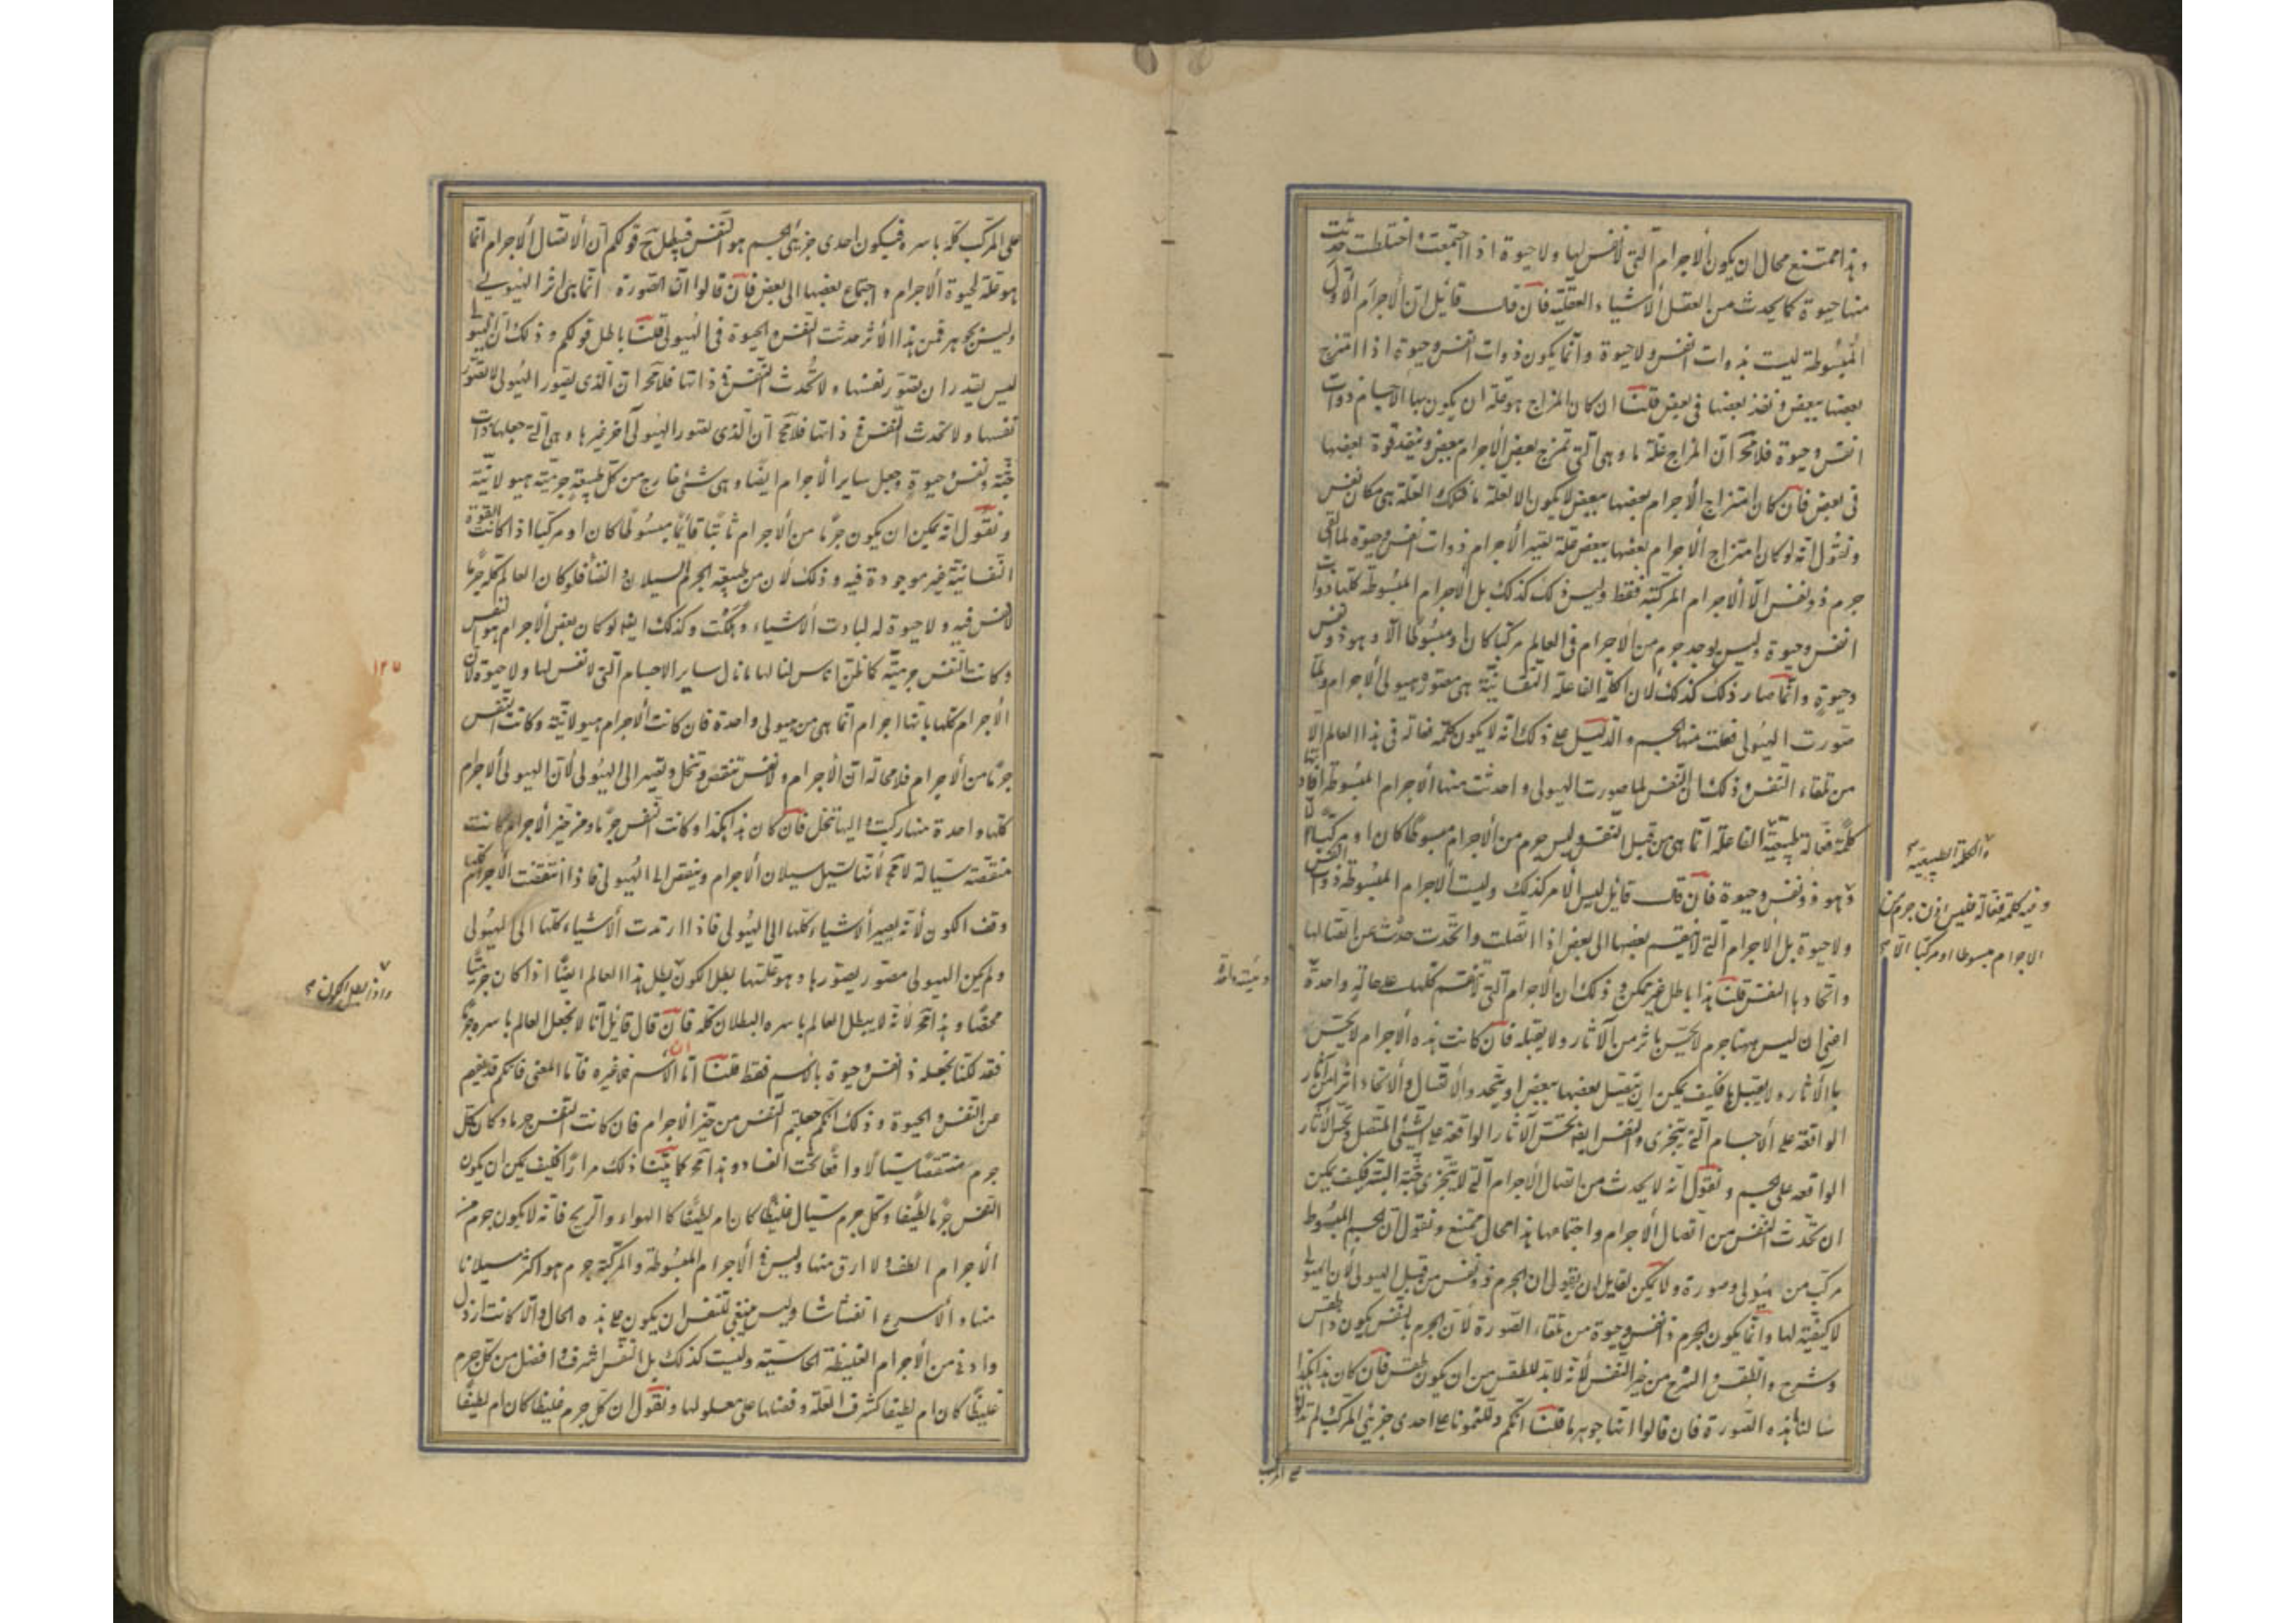 وهذا ممتنع محال ان يكون الاجرام التى لا نفس لها ولا حيوة اذا اجتمعت واختلطت حدثت
منها حيوة كما يحدث من العقل الاشياء العقلية فان قال قائل ان الاجرام الأول
المبسوطة ليست بذوات انفس ولا حيوة وانما يكون ذوات انفس وحيوة اذا امتزج
بعضها ببعض ونفذ بعضها فى بعض قلنا ان كان المزاج هو علة ان يكون بها الاجسام ذوات
انفس وحيوة فلا مح ان المزاج علة ما وهى التى تمزج بعض الاجرام ببعض وينفذ قوة بعضها
فى بعض فان كان امتزاج الاجرام بعضها ببعض لا يكون الا لعلة ما فتلك العلة هى مكان نفس
ونقول انه لو كان امتزاج الاجرام بعضها ببعض علة لتصير الاجرام ذوات انفس وحيوة لما القى
جرم ذو نفس الا الاجرام المركبة فقط وليس ذلك كذلك بل الاجرام المبسوطة كلها ذوات
انفس وحيوة وليس يوجد جرم من الاجرام فى العالم مركبا كان او مبسوطا الا وهو ذو نفس
وحيوة وانما صار ذلك كذلك لان الكلمة الفاعلة النفسانية هى مصورة هيولى الاجرام ولما
صورت الهيولى فعلت منها الجسم والدليل على ذلك انه لا يكون كلمة فعالة فى هذا العالم الا
من تلقاء النفس وذلك ان النفس لما صورت الهيولى واحدثت منها الاجرام المبسوطة افادتها
كلمة فعالة طبيعية الفاعلة انما هى من قبل النفس وليس جرم من الاجرام مبسوطا كان او مركبا الا
وهو ذو نفس وحيوة فان قال قائل ليس الامر كذلك وليست الاجرام المبسوطة ذوات انفس
ولا حيوة بل الاجرام التى لا تنقسم بعضها الى بعض اذا اتصلت واتحدت حدث عن اتصالها
واتحادها النفس قلنا هذا باطل غير ممكن وذلك ان الاجرام التى لا تنقسم كلها على حالة واحدة
اعنى ان ليس منها جرم لا يحس باثر من الآثار ولا يقبله فان كانت هذه الاجرام لا يحس
بالآثار ولا يقبلها فكيف يمكن ان يتصل بعضها ببعض او يتحد والاتصال والاتحاد اثر من آثار
الواقعة على الاجسام التى يتجزى والنفس ايضا تحس الآثار الواقعة على الشئ المتصل وتحس الآثار
الواقعة على الجسم ونقول انه لا يحدث من اتصال الاجرام التى لا يتجزى جثة البتة فكيف يمكن
ان تحدث النفس من اتصال الاجرام واجتماعها هذا محال ممتنع ونقول ان الجسم المبسوط
مركب من هيولى وصورة ولا يمكن لقايل ان يقول ان الجرم ذو نفس من قبل الهيولى لأن الهيولى
لا كيفية لها وانما يكون الجرم ذا نفس وحيوة من تلقاء الصورة لأن الجرم بالنفس يكون ذا طقس
وشرح والطقس والشرح من حيز النفس لأنه لا بد للطقس من ان يكون لنفس فان كان هذا هكذا
سالنا ما هذه الصورة فان قالوا انها جوهر ما قلنا انكم دللتمونا على احدى جزئى المركب لم تدلونا
على المركب
والكلمة الطبيعية
وفيه كلمة فعالة فليس اذن جرم من
الاجرام مبسوطا او مركبا الا
على المركب كله باسره فيكون احدى جزئى الجسم هو النفس فيبطل ح قولكم ان الاتصال الاجرام انما
هو علة لحيوة الاجرام واجتماع بعضها الى بعض فان قالوا ان الصورة انما هى اثر الهيولى
وليس بجوهر فمن هذا الأثر حدثت النفس والحيوة فى الهيولى قلنا باطل قولكم وذلك ان الهيولى
ليس يقدر ان تصور نفسها ولا تحدث النفس فى ذاتها فلا مح ان الذى يصور الهيولى لا تصور
نفسها ولا تحدث النفس فى ذاتها فلا مح ان الذى يصور الهيولى آخر غيرها وهى التى جعلها ذات
جثة ونفس وحيوة وجعل ساير الاجرام ايضا وهى شئ خارج من كل طبيعة جرمية هيولانية
ونقول انه يمكن ان يكون جرما من الاجرام ثابتا قائما مبسوطا كان او مركبا اذا كانت القوة
النفسانية غير موجودة فيه وذلك لان من طبيعة الجرم السيلان والفنا فلو كان العالم كله جرما
لا نفس فيه ولا حيوة له لبادت الاشياء وهلكت وكذلك ايضا لو كان بعض الاجرام هو النفس
وكانت النفس جرمية كما ظن اناس لنا لها ما نال ساير الاجسام التى لا نفس لها ولا حيوة لان
الأجرام كلها بانها اجرام انما هى من هيولى واحدة فان كانت الاجرام هيولانية وكانت النفس
جرما من الاجرام فلا محالة ان الاجرام والانفس تنتقض وتنحل وتصير الى الهيولى لأن الهيولى الاجرام
كلها واحدة منها ركبت واليها تنحل فان كان هذا هكذا وكانت النفس جرما من حيز الأجرام كانت
منتقضة سيالة لا مح لأنها تسيل سيلان الأجرام وينقض الى الهيولى فاذا انتقضت الأجرام كلها
وقف الكون لأنه يصير الأشياء كلها الى الهيولى فاذا ارتدت الأشياء كلها الى الهيولى
ولم يكن الهيولى مصور يصورها وهو علتها بطل الكون بطل هذا العالم ايضا اذا كان جرميا
محضا وهذا مح لأنه لا يبطل العالم باسره البطلان كله فان قال قائل انا لا نجعل العالم باسره جرما
فقد لكنا نجعله ذا نفس وحيوة بالاسم فقط قلنا اما الاسم فلا غيره فاما المعنى فانكم قد نفيتم
عن النفس والحيوة وذلك انكم جعلتم النفس من حيز الأجرام فان كانت النفس جرما وكان كل
جرم منتقضا سيالا واقعا تحت الفساد وهذا مح كما بينا ذلك مرارا فكيف يمكن ان يكون
النفس جرما لطيفا وكل جرم سيال غليظا كان ام لطيفا كالهواء والريح فانه لا يكون جرم من
الأجرام الطف ولا ارق منها وليس فى الأجرام المبسوطة والمركبة جرم هو اكثر سيلانا
منها ولا أسرع انفشاشا وليس ينبغى للنفس ان يكون على هذه الحال والا كانت ارذل
وادنى من الأجرام الغليظة الجاسية وليست كذلك بل النفس اشرف وافضل من كل جرم
غليظا كان ام لطيفا كشرف العلة وفضلها على معلولها ونقول ان كل جرم غليظا كان ام لطيفا
١٢٥
واذا بطل الكون